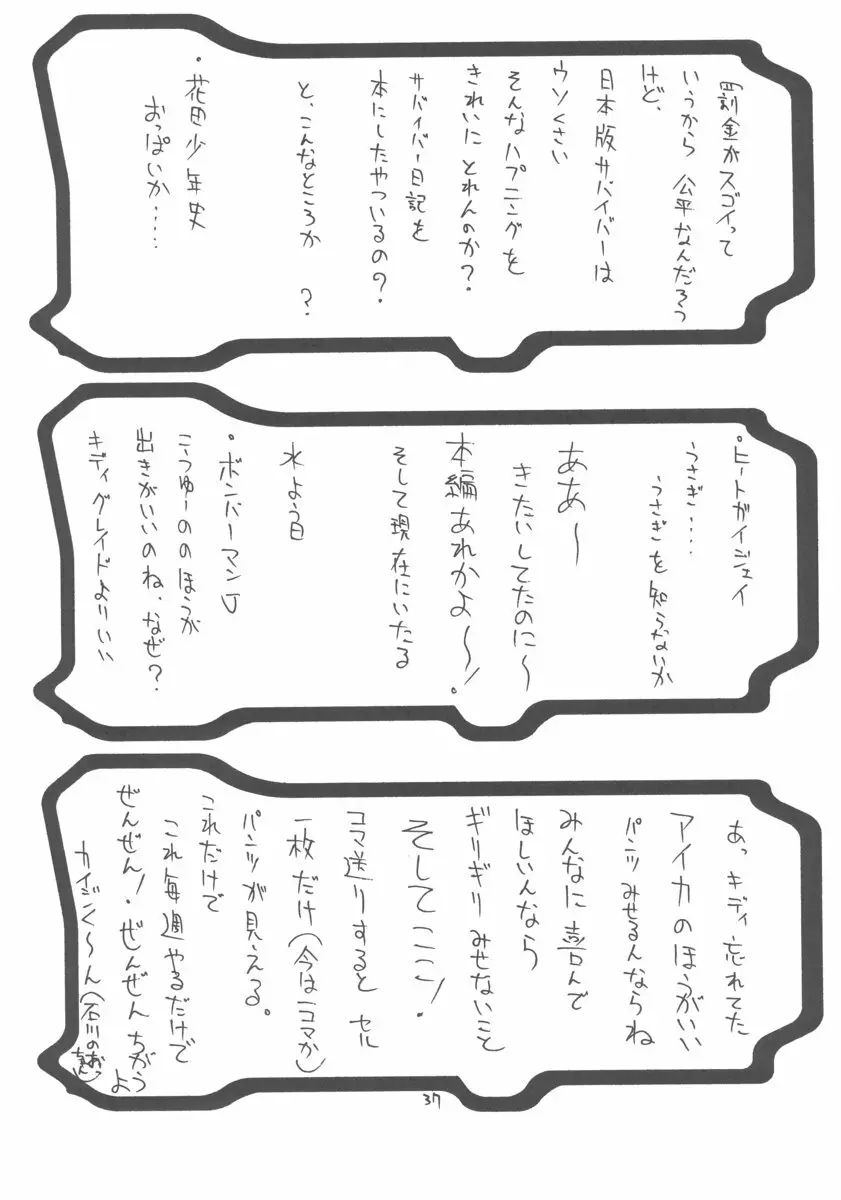 罰金がスゴイって
いうから 公平なんだろう
けど、
日本版サバイバーは
ウソくさい
そんなハプニングを
きれいに とれんのか?
サバイバー日記を
本にしたやついるの?
と、こんなところか ?
・花田少年史
おっぱいか……
・ヒートガイジェイ
うさぎ…
うさぎを知らないか
ああ〜
きたいしてたのに〜
本編あれかよ〜!.
そして現在にいたる
水よう日
・ボンバーマンJ
こうゆーののほうが
出きがいいのね、なぜ?
キディグレイドよりいい
あっ キディ忘れてた
アイカのほうがいい
パンツみせるんならね
みんなに喜んで
ほしいんなら
ギリギリ みせないこと
そしてここ!.
コマ送りすると セル
一枚だけ(今は一コマか)
パンツが見える。
これだけで
これ毎週やるだけで
ぜんぜん!・ぜんぜん ちがうよ
カイジンく〜ん(石川のおっちゃん)
37